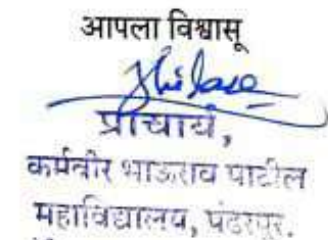 आपला विश्वासू
प्राचार्य,
कर्मवीर भाऊराव पाटील
महाविद्यालय, पंढरपुर.